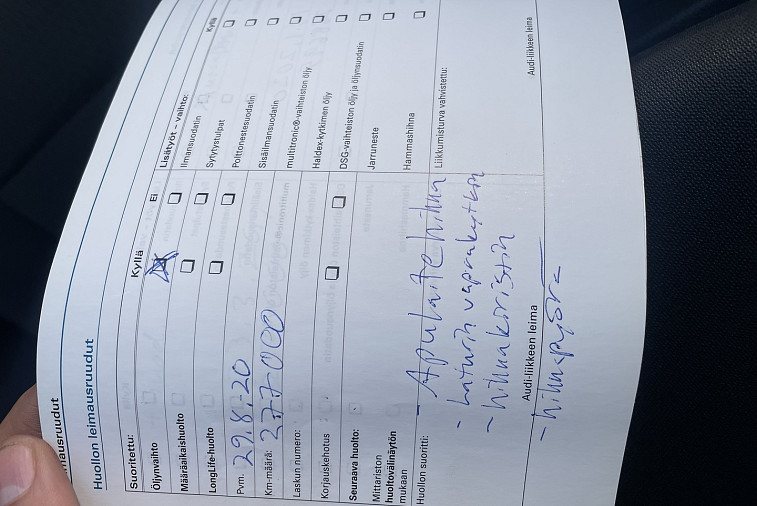 Huollon leimausruudut
Suoritettu: Kyllä Ei
Öljynvaihto
Määräaikaishuolto
LongLife-huolto
Pvm. 29.8.-20
Km-määrä: 277000
Laskun numero:
Korjauskehotus
Seuraava huolto:
Mittariston
huoltovälinäytön
mukaan
Huollon suoritti:
- Apulaitehihna
- Laturin vapaakytkin
- hihnakiristin
Audi-liikkeen leima
- hihnapyörä
Lisätyöt – vaihto: Kyllä
Ilmansuodatin
Sytytystulpat
Polttonestesuodatin
Sisäilmansuodatin
multitronic®-vaihteiston öljy
Haldex-kytkimen öljy
DSG-vaihteiston öljy ja öljynsuodatin
Jarruneste
Hammashihna
Liikkumisturva vahvistettu:
Audi-liikkeen leima